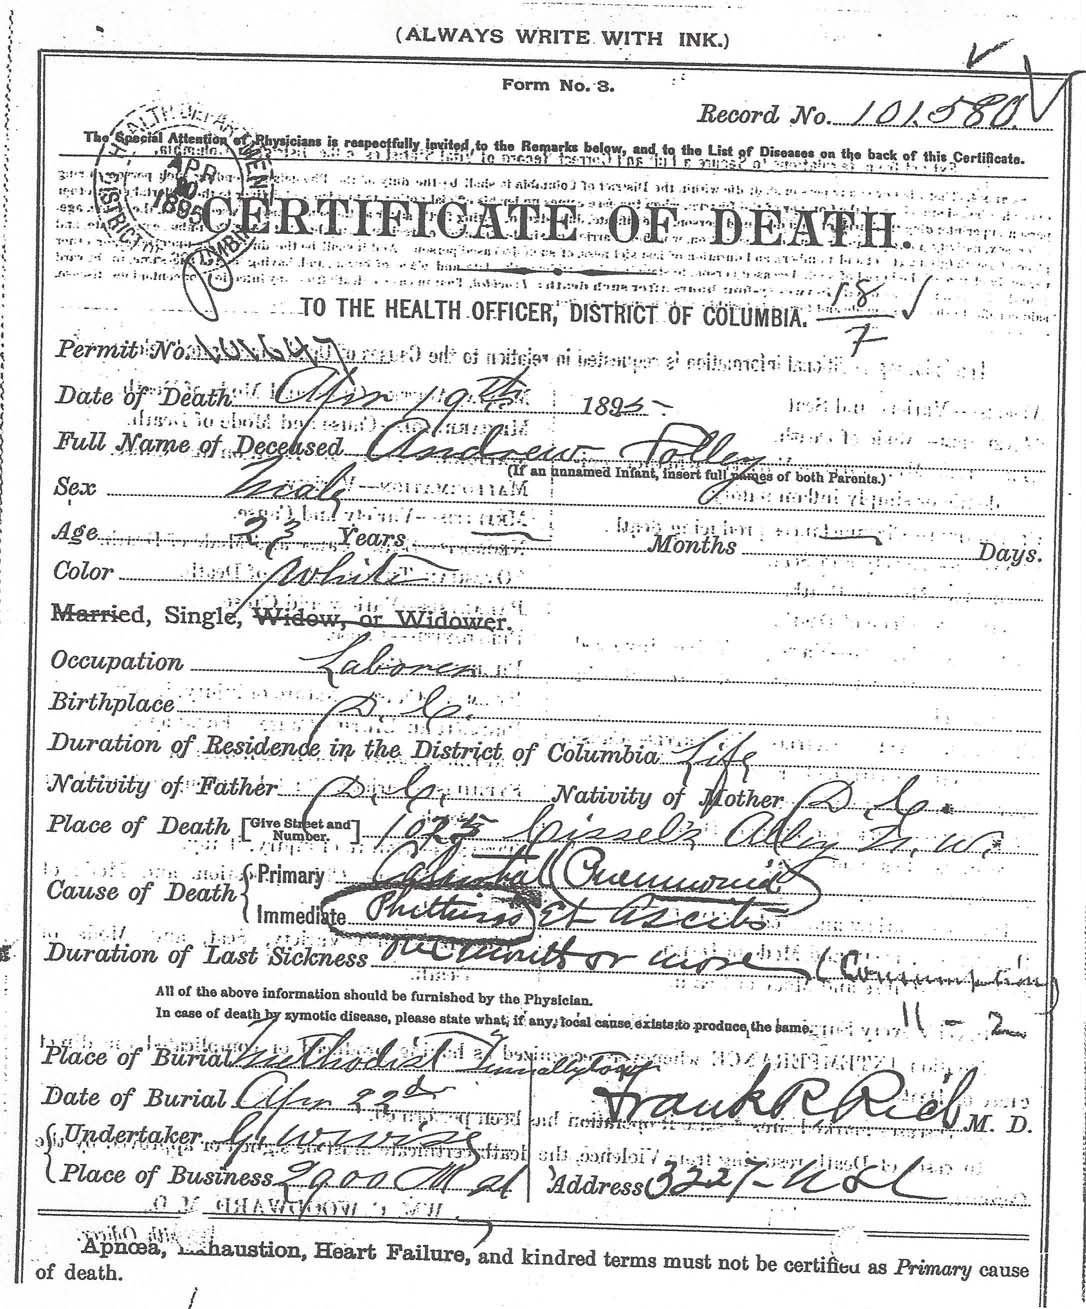 (ALWAYS WRITE WITH INK.)
Form No. 3.
Record No. 101.580
The Special Attention of Physicians is respectfully invited to the Remarks below, and to the List of Diseases on the back of this Certificate.
HEALTH DEPARTMENT DISTRICT OF COLUMBIA
APR 1895
CERTIFICATE OF DEATH.
TO THE HEALTH OFFICER, DISTRICT OF COLUMBIA. 18
7
Permit No.
Date of Death Apr 19th 1895
Full Name of Deceased Andrew Tolley
(If an unnamed Infant, insert full names of both Parents.)
Sex Male
Age 23 Years — Months — Days.
Color White
Married, Single, Widow, or Widower.
Occupation Laborer
Birthplace D. C.
Duration of Residence in the District of Columbia Life
Nativity of Father D. C. Nativity of Mother D. C.
Place of Death [Give Street and Number.] 1025 Cissel's Alley N. W.
Cause of Death { Primary Catarrhal Pneumonia
Immediate Phthisis Et Ascites
Duration of Last Sickness One month or more (Consumption)
All of the above information should be furnished by the Physician.
In case of death by zymotic disease, please state what, if any, local cause exists to produce the same. 11 - 2
Place of Burial Methodist Tennallytown
Date of Burial Apr 22d
Frank R Rich M. D.
Undertaker
Place of Business 2900 M st
Address 3227 - N St
Apnœa, Exhaustion, Heart Failure, and kindred terms must not be certified as Primary cause
of death.